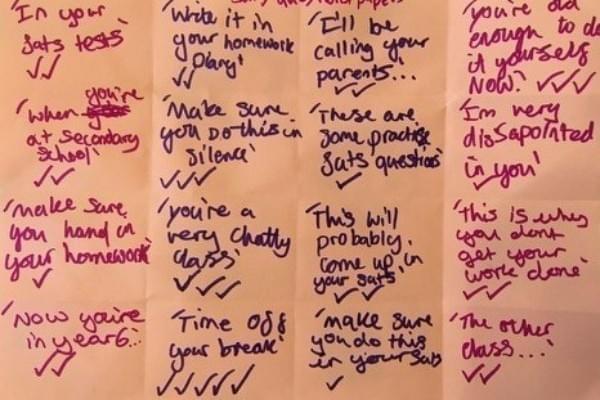 'In your
Sats tests'
'Write it in
your homework
Diary'
'I'll be
calling your
parents...
you're old
enough to do
it yourself
Now.'
'when you're
at secondary
School'
'Make sure
you Do this in
silence'
'These are
some practise
Sats questions'
'I'm very
dissapointed
in you'
'make sure
you hand in
your homework'
'you're a
very chatty
class'
'This will
probably
come up in
your sats'
'this is why
you dont
get your
work done'
'Now you're
in year 6...
'Time off
your break'
'make sure
you do this
in your Sats
'The other
class...'